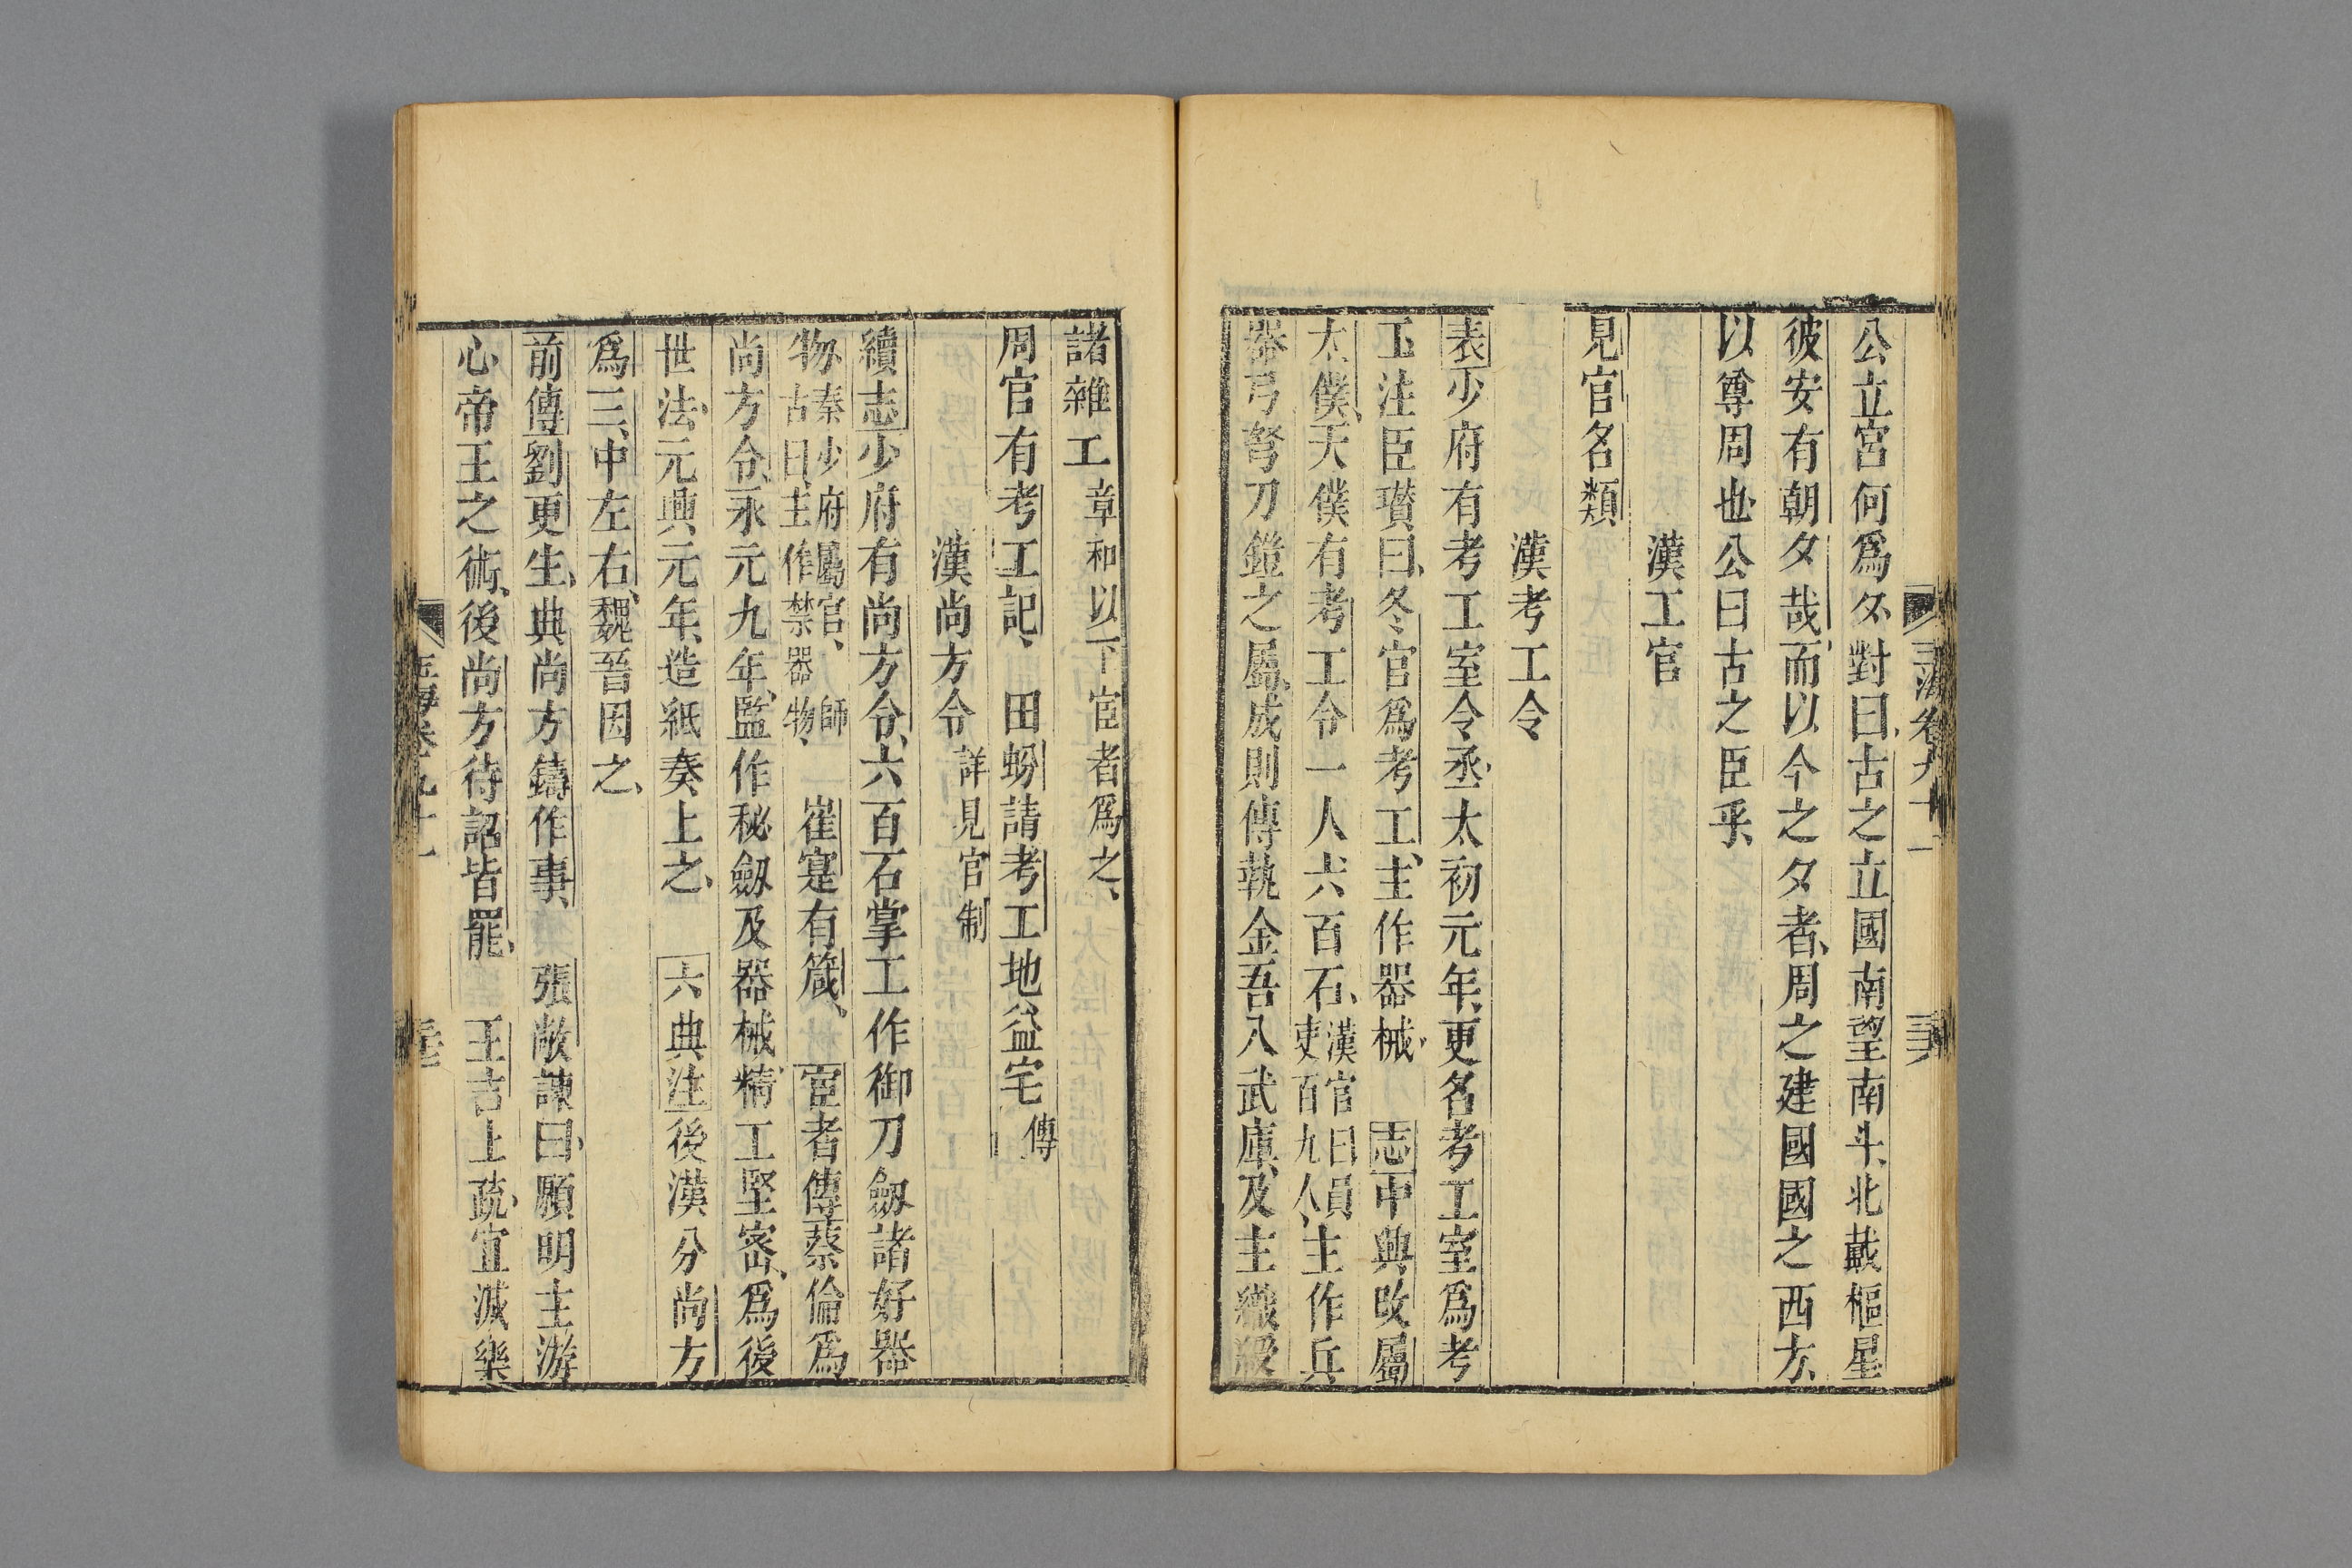 公立宮何爲夕對曰古之立國南望南斗北戴樞星
彼安有朝夕哉而以今之夕者周之建國國之西方
以尊周也公曰古之臣乎
漢工官
見官名類
漢考工令
表少府有考工室令丞太初元年更名考工室爲考
工注臣瓚曰冬官爲考工主作器械 志中興改屬
太僕天僕有考工令一人六百石漢官曰員吏百九人主作兵
器弓弩刀鎧之屬成則傳執金吾入武庫及主織綬
諸雜工章和以下宦者爲之
周官有考工記 田蚡請考工地益宅傳
漢尚方令詳見官制
續志少府有尚方令六百石掌工作御刀劒諸好器
物秦少府屬官師古曰主作禁器物 崔寔有箴 宦者傳蔡倫爲
尚方令永元九年監作秘劒及器械精工堅密爲後
世法元興元年造紙奏上之 六典注後漢分尚方
爲三中左右魏晉因之
前傳劉更生典尚方鑄作事 張敞諫曰願明主游
心帝王之術後尚方待詔皆罷 王吉上疏宜減樂
玉海卷九十一